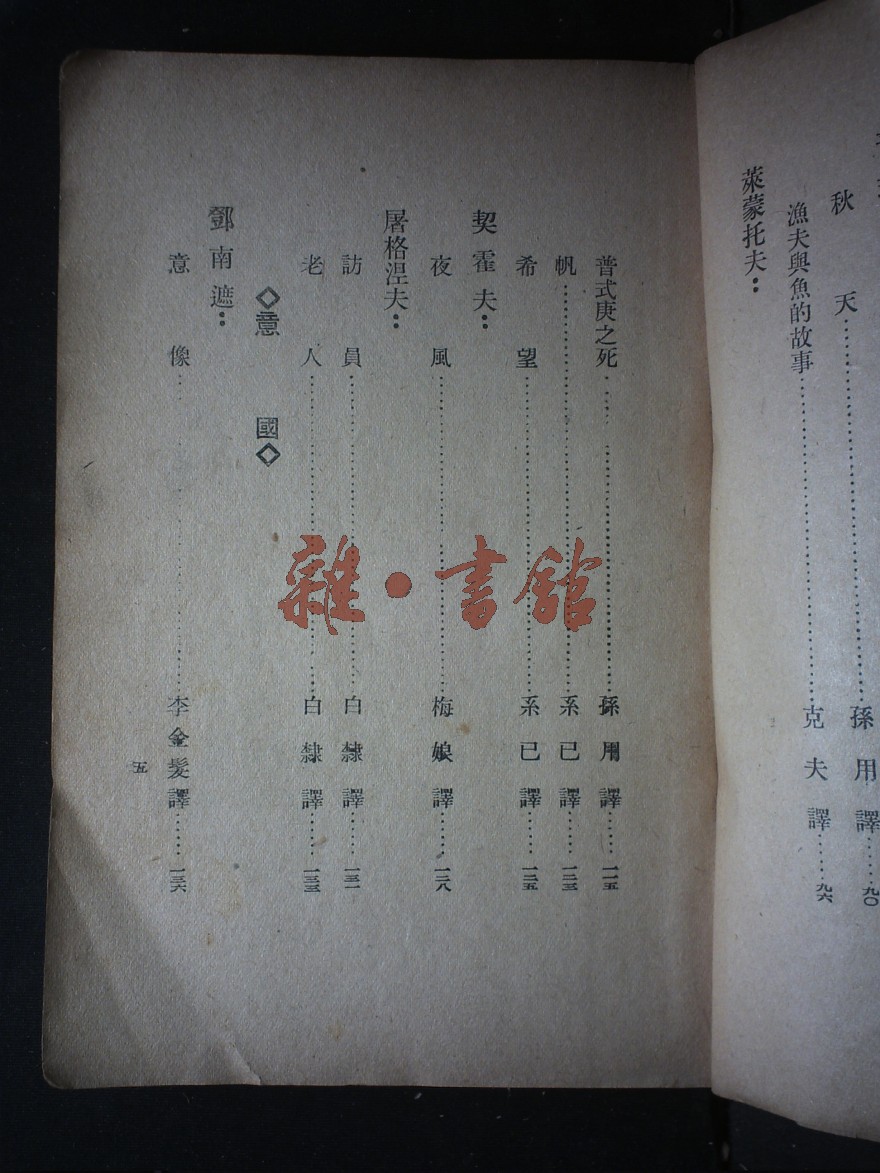 秋天……孫用譯……九〇
漁夫與魚的故事……克夫譯……九六
萊蒙托夫：
普式庚之死……孫用譯……一一五
帆……系已譯……一二三
希望……系已譯……一二五
契霍夫：
夜風……梅娘譯……一二八
屠格涅夫：
訪員……白隸譯……一三一
老人……白隸譯……一三三
◇意國◇
鄧南遮：
意像……李金髮譯……一三六
五
雜·書館